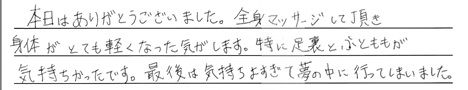 本日はありがとうございました。全身マッサージして頂き
身体がとても軽くなった気がします。特に足裏とふとももが
気持ちかったです。最後は気持ちよすぎて夢の中に行ってしまいました。